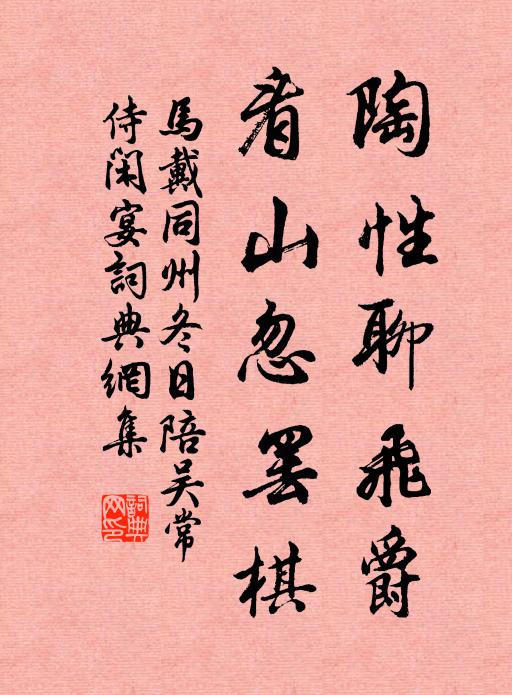 陶性聊飛爵
看山忽罷棋
馬戴同州冬日陪吳常
侍閑宴詞典網集
詞典网印